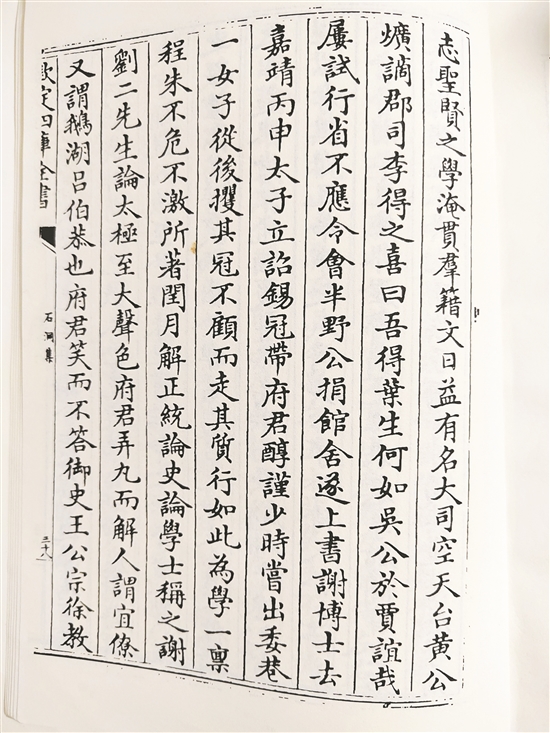 志聖賢之學淹貫羣籍文日益有名大司空天台黃公
爌謫郡司李得之喜曰吾得葉生何如吳公於賈誼哉
屢試行省不應令會半野公捐館舍遂上書謝博士去
嘉靖丙申太子立詔錫冠帶府君醇謹少時嘗出委巷
一女子從後攫其冠不顧而走其質行如此為學一禀
程朱不危不激所著閏月解正統論史論學士稱之謝
劉二先生論太極至大聲色府君弄九而解人謂宜僚
又謂鵝湖呂伯恭也府君笑而不答御史王公宗徐教
欽定四庫全書
石洞集
三十八